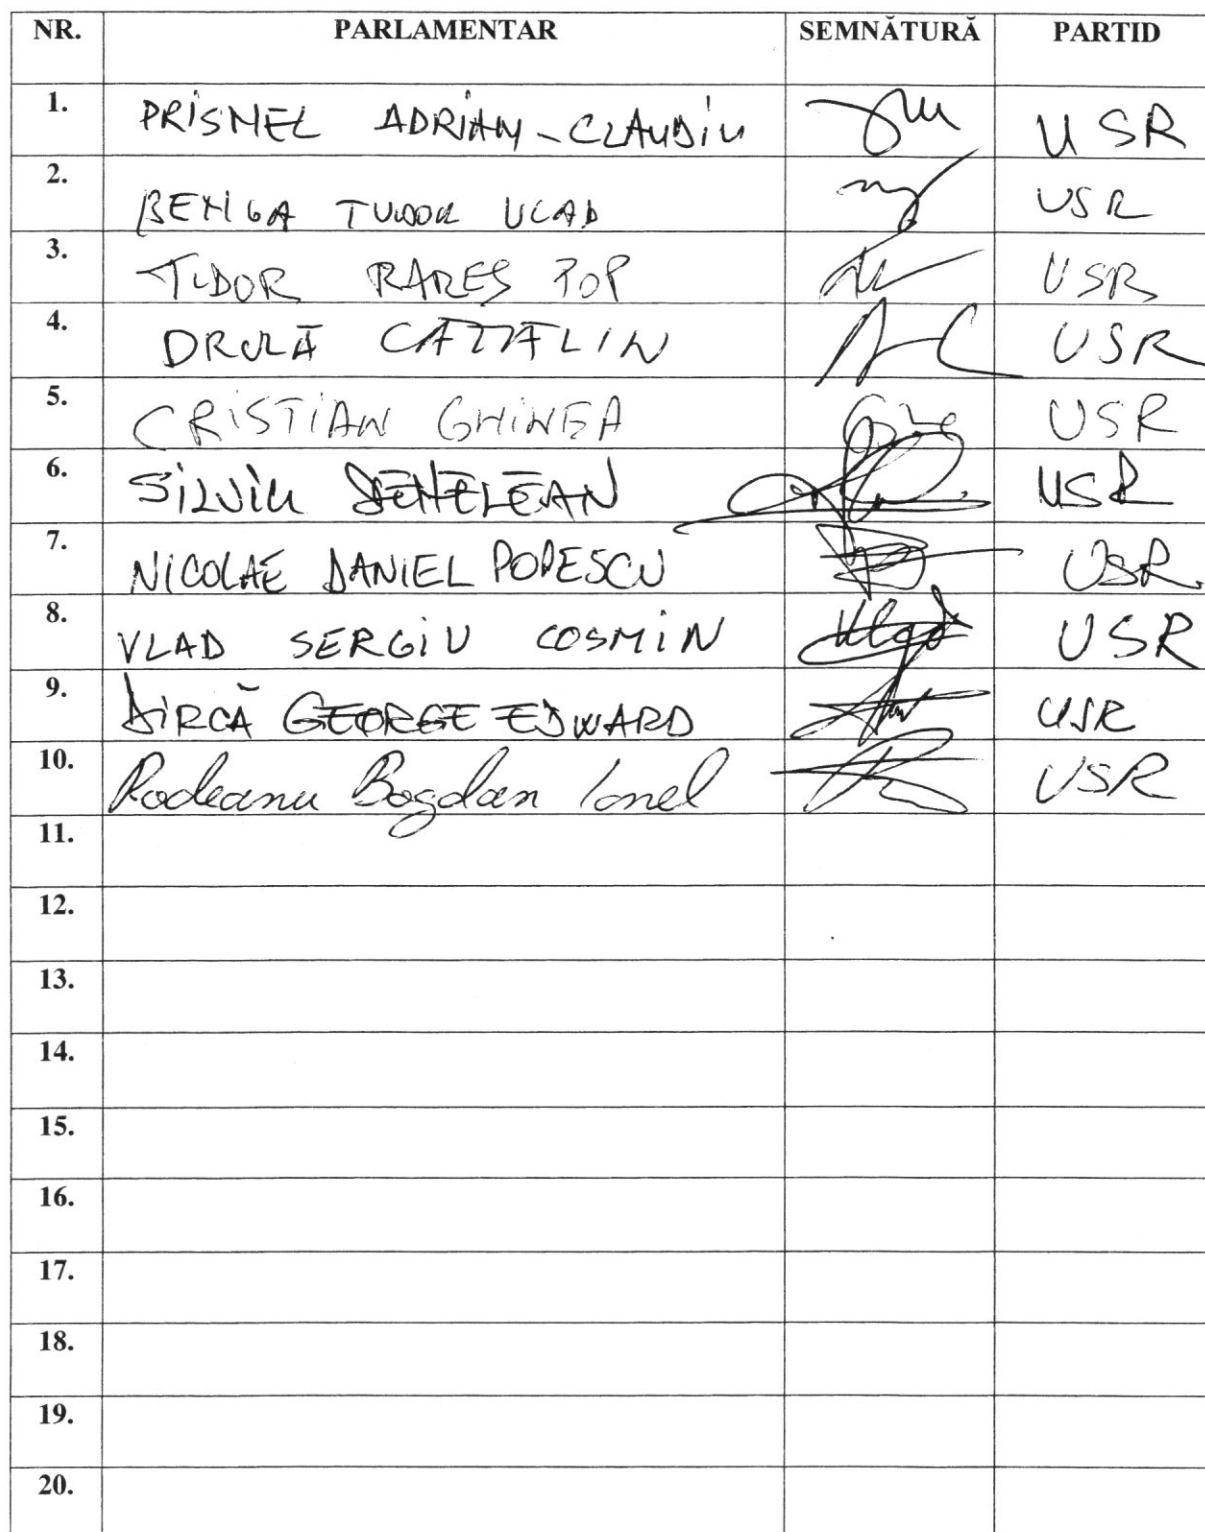 NR. PARLAMENTAR SEMNĂTURĂ PARTID
1. PRISNEL ADRIAN-CLAUDIU USR
2. BENGA TUDOR VLAD USR
3. TUDOR RAREȘ POP USR
4. DRULĂ CĂTĂLIN USR
5. CRISTIAN GHINEA USR
6. SILVIU DEHELEAN USR
7. NICOLAE DANIEL POPESCU USR
8. VLAD SERGIU COSMIN Vlad USR
9. GEORGE EDWARD USR
10. Rodeanu Bogdan Ionel USR
11.
12.
13.
14.
15.
16.
17.
18.
19.
20.